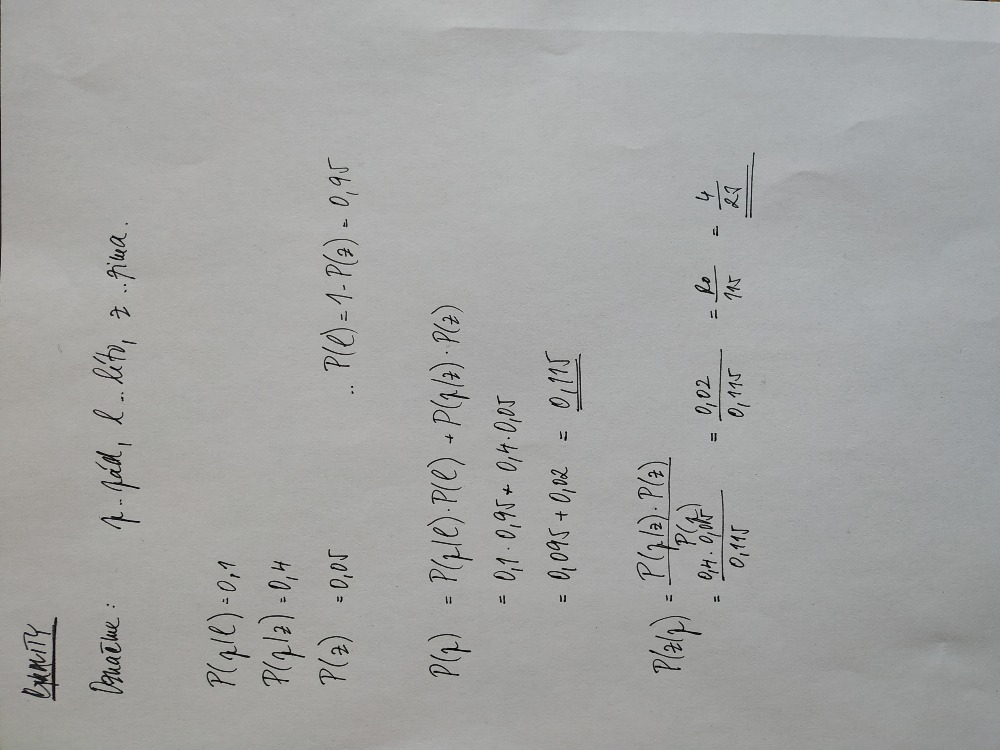 Označme: p.. pád, l .. léto, z .. zima.
P(p/l) = 0,1
P(p/z) = 0,4
P(z) = 0,05 .. P(l) = 1 - P(z) = 0,95
P(p) = P(p/l) · P(l) + P(p/z) · P(z)
= 0,1 · 0,95 + 0,4 · 0,05
= 0,095 + 0,02 = 0,115
P(z/p) = P(p/z) · P(z) / P(p)
= 0,4 · 0,05 / 0,115 = 0,02 / 0,115 = 20 / 115 = 4 / 23